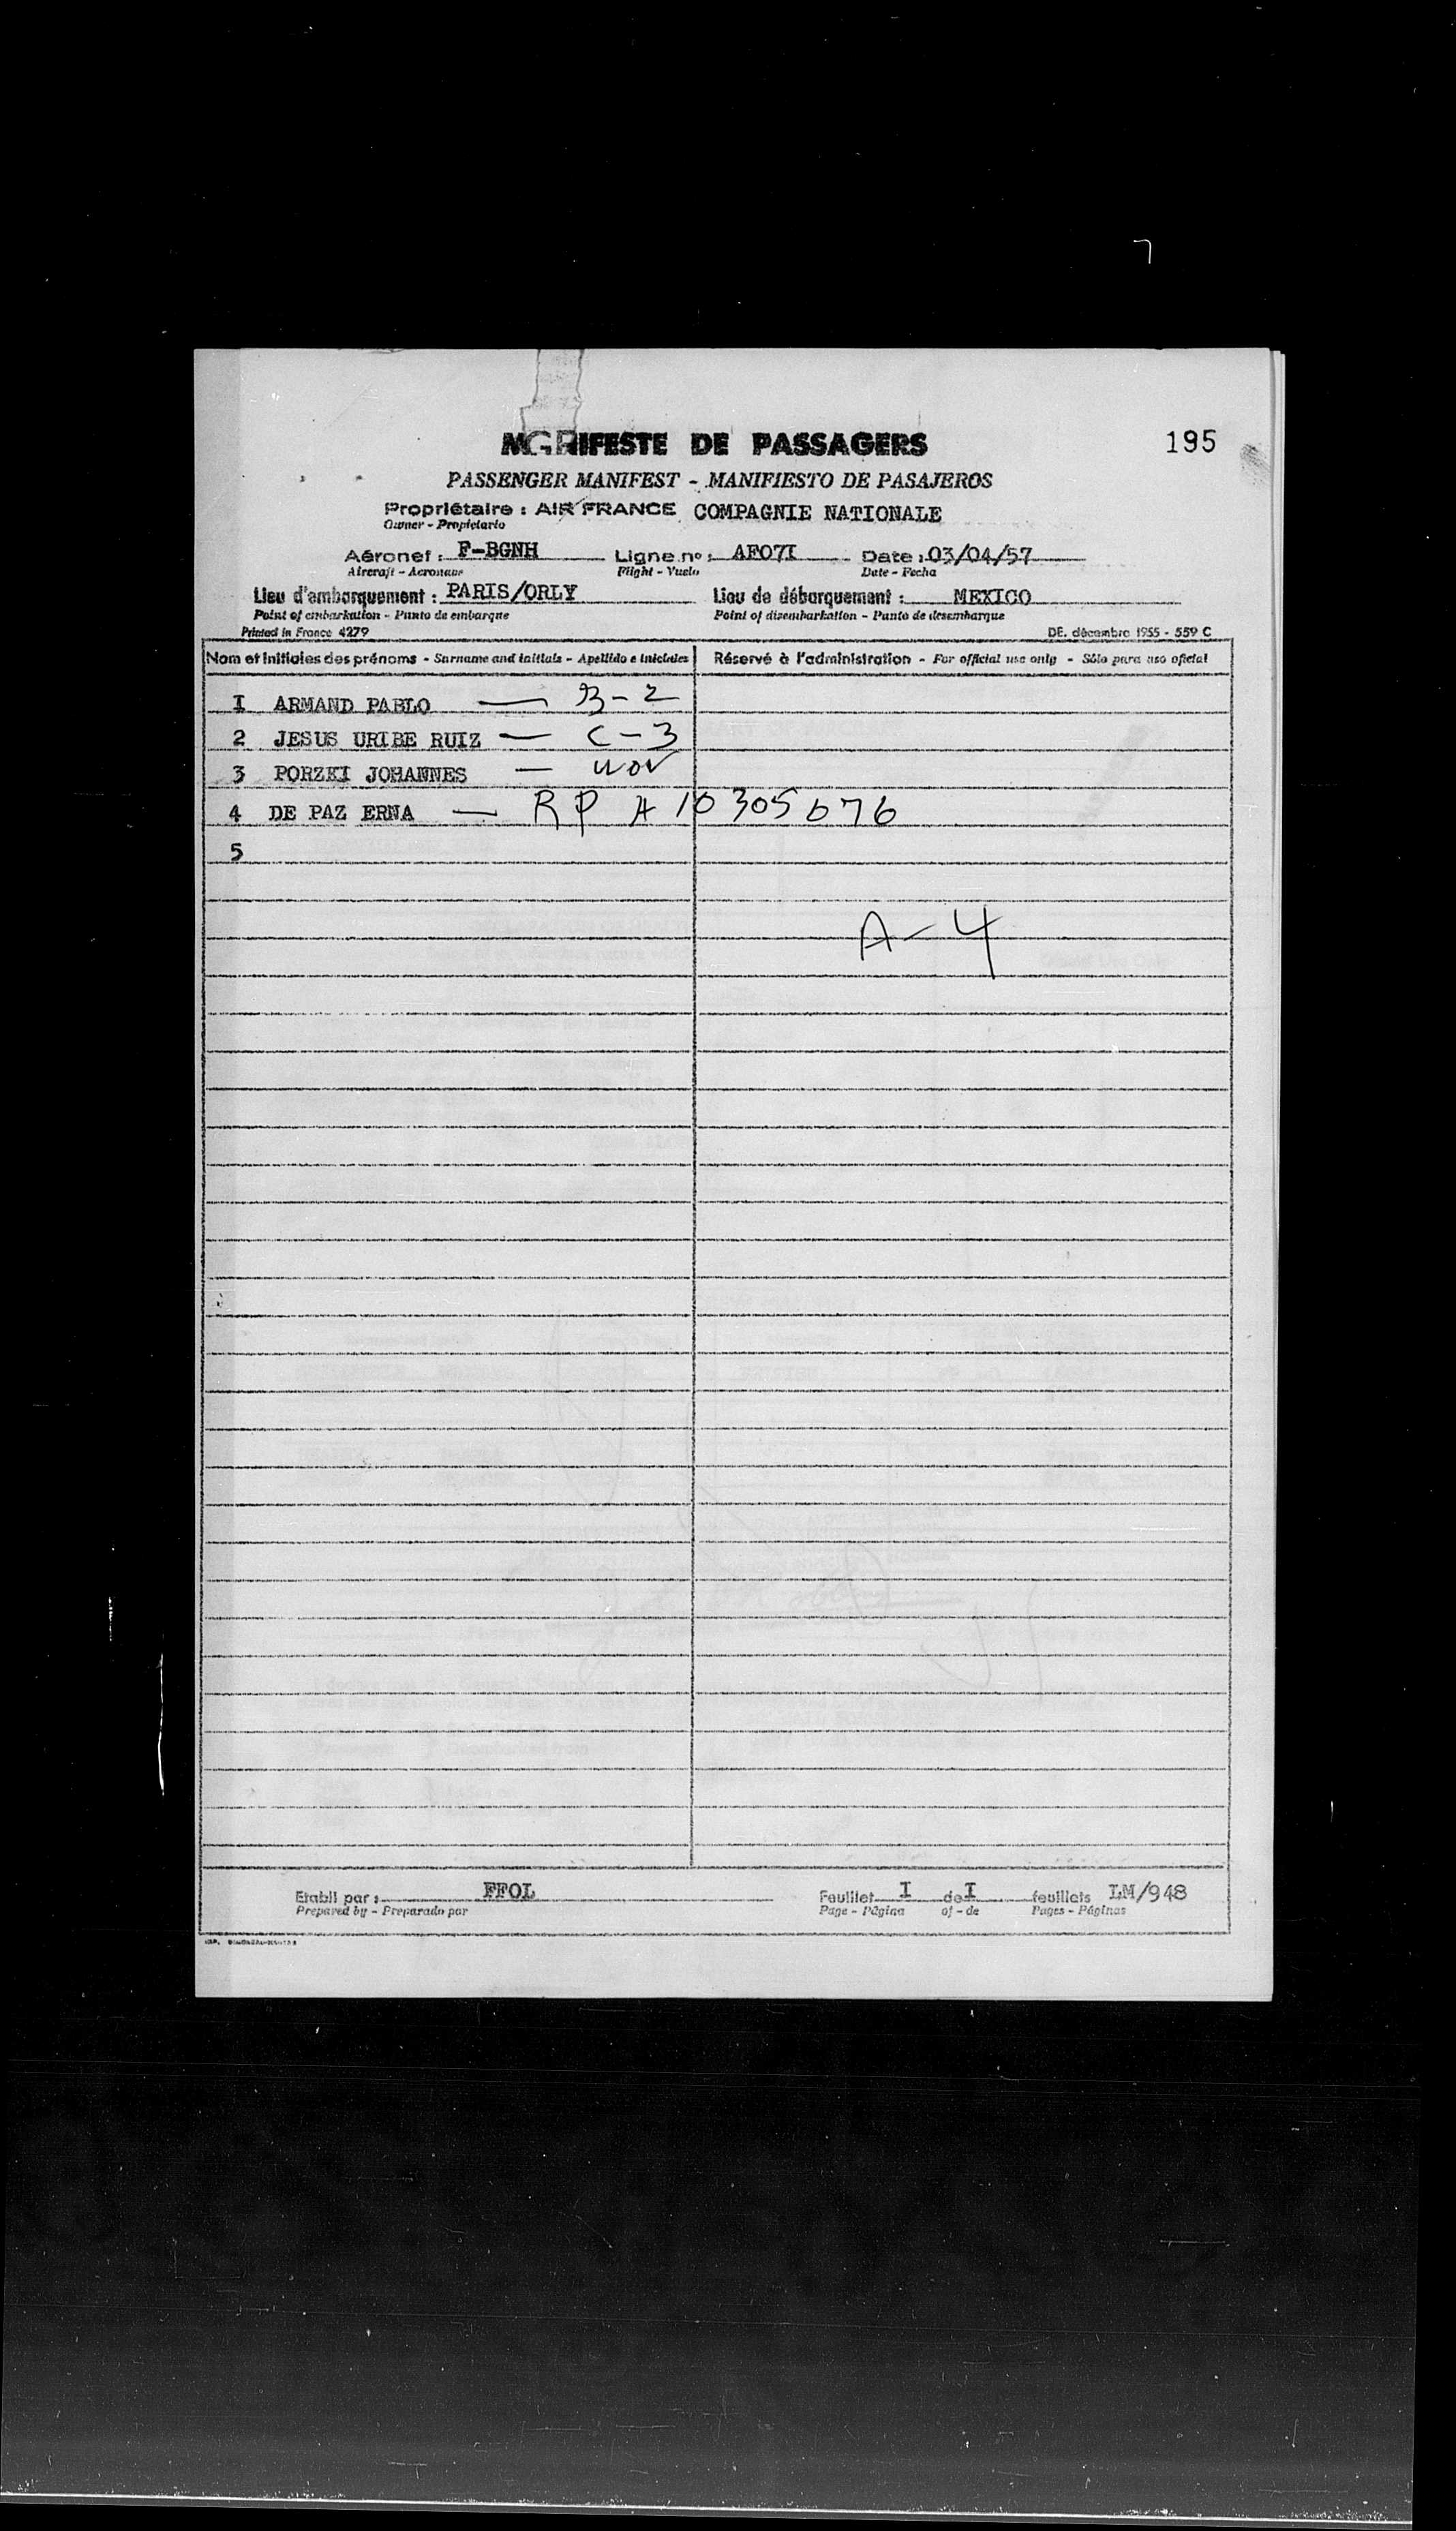 195
MANIFESTE DE PASSAGERS
PASSENGER MANIFEST - MANIFIESTO DE PASAJEROS
Propriétaire : AIR FRANCE COMPAGNIE NATIONALE
Owner - Propietario
Aéronef : F-BGNH Ligne no : AF07I Date : 03/04/57
Aircraft - Aeronave Flight - Vuelo Date - Fecha
Lieu d'embarquement : PARIS/ORLY Lieu de débarquement : MEXICO
Point of embarkation - Punto de embarque Point of disembarkation - Punto de desembarque
Printed in France 4279 DE. décembre 1955 - 559 C
Nom et initiales des prénoms - Surname and initials - Apellido e iniciales Réservé à l'administration - For official use only - Sólo para uso oficial
I ARMAND PABLO — B-2
2 JESUS URIBE RUIZ — C-3
3 PORZKI JOHANNES — WOV
4 DE PAZ ERNA — RP A10305676
5
A-4
Etabli par : FFOL Feuillet I de I feuillets LM/948
Prepared by - Preparado por Page - Página of - de Pages - Páginas